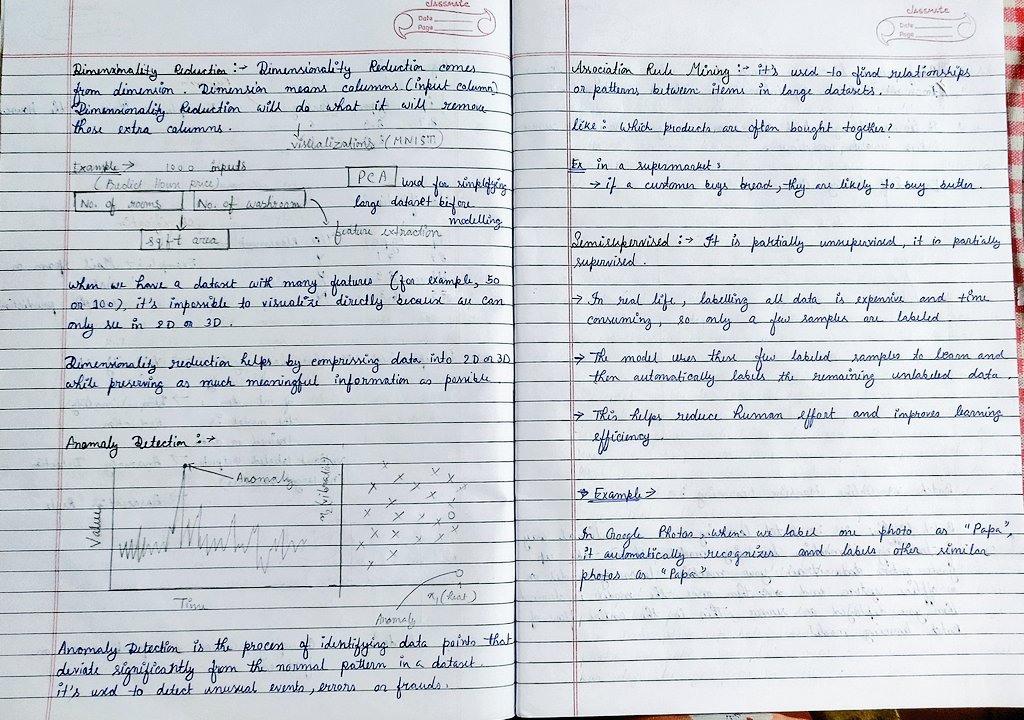 classmate
Date
Page
Dimensionality Reduction :→ Dimensionality Reduction comes
from dimension. Dimension means columns. (input column)
Dimensionality Reduction will do what it will remove
those extra columns.
visualizations :(MNIST)
Example → 1000 inputs
(Predict House price)
No. of rooms
No. of washroom
sq.ft area
feature extraction
PCA used for simplifying
large dataset before
modelling
when we have a dataset with many features (for example, 50
or 100), it's impossible to visualize directly because we can
only see in 2D or 3D.
Dimensionality reduction helps by compressing data into 2D or 3D
while preserving as much meaningful information as possible.
Anomaly Detection :→
Anomaly
Value
Time
x₂ (vibration)
x₁ (heat)
Anomaly
Anomaly Detection is the process of identifying data points that
deviate significantly from the normal pattern in a dataset.
it's used to detect unusual events, errors or frauds.
classmate
Date
Page
Association Rule Mining :→ it's used to find relationships
or patterns between items in large datasets.
like : which products are often bought together?
Ex in a supermarket :
→ if a customer buys bread, they are likely to buy butter.
Semisupervised :→ It is partially unsupervised, it is partially
supervised.
→ In real life, labelling all data is expensive and time
consuming, so only a few samples are labeled
→ The model uses these few labeled samples to learn and
then automatically labels the remaining unlabeled data.
→ This helps reduce human effort and improves learning
efficiency.
→ Example →
In Google Photos, when we label one photo as "Papa",
it automatically recognizes and labels other similar
photos as "Papa".